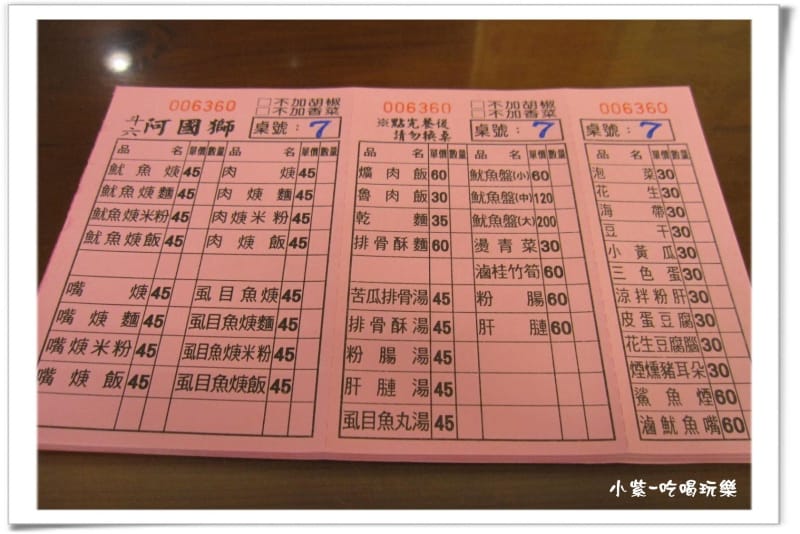 006360 □不加胡椒
□不加香菜
斗六 阿國獅 桌號:7
品名 單價 數量 品名 單價 數量
魷魚焿 45 肉焿 45
魷魚焿麵 45 肉焿麵 45
魷魚焿米粉 45 肉焿米粉 45
魷魚焿飯 45 肉焿飯 45
嘴焿 45 虱目魚焿 45
嘴焿麵 45 虱目魚焿麵 45
嘴焿米粉 45 虱目魚焿米粉 45
嘴焿飯 45 虱目魚焿飯 45
006360 □不加胡椒
□不加香菜
※點完餐後
請勿換桌 桌號:7
品名 單價 數量 品名 單價 數量
爌肉飯 60 魷魚盤(小) 60
魯肉飯 30 魷魚盤(中) 120
乾麵 35 魷魚盤(大) 200
排骨酥麵 60 燙青菜 30
滷桂竹筍 60
苦瓜排骨湯 45 粉腸 60
排骨酥湯 45 肝腱 60
粉腸湯 45
肝腱湯 45
虱目魚丸湯 45
006360
桌號:7
品名 單價 數量
泡菜 30
花生 30
海帶 30
豆干 30
小黃瓜 30
三色蛋 30
涼拌粉肝 30
皮蛋豆腐 30
花生豆腐腦 30
煙燻豬耳朵 30
鯊魚煙 60
滷魷魚嘴 60
小紫-吃喝玩樂